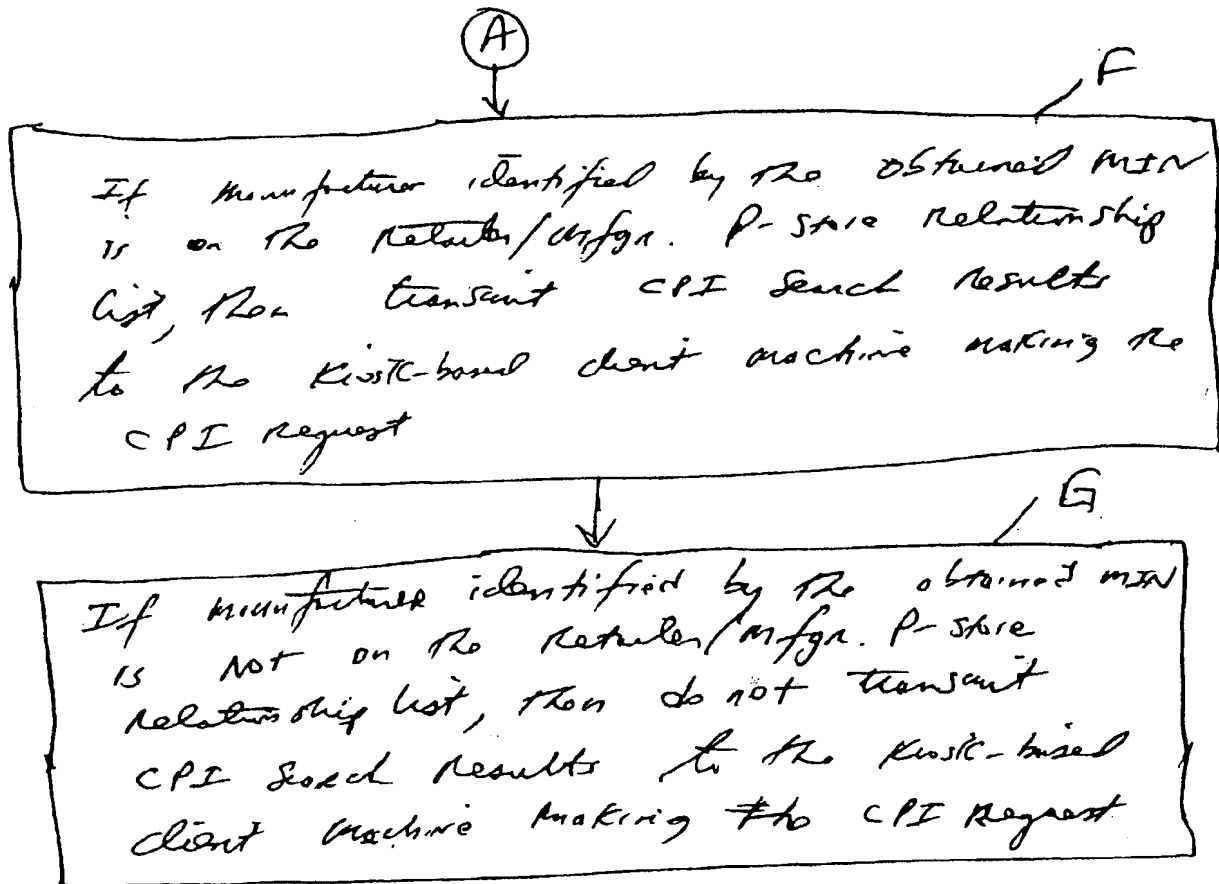 A
F
If manufacturer identified by the obtained MIN
is on the Retailer/Mfgr. P-store relationship
list, then transmit CPI search results
to the Kiosk-based client machine making the
CPI Request
G
If manufacturer identified by the obtained MIN
is Not on the Retailer/Mfgr. P-store
relationship list, then do not transmit
CPI Search Results to the Kiosk-based
client machine making the CPI Request